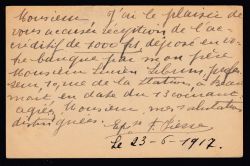 Monsieur, j'ai le plaisir de
vous accuser réception de l'ac-
créditif de 1000 frs, déposé en vo-
tre banque par mon frère
Monsieur Lucien profes-
seur, rue de la Station, à
en date du 13 courant
agréez Monsieur, mes salutations
distinguées.
Le 23-6-1917.